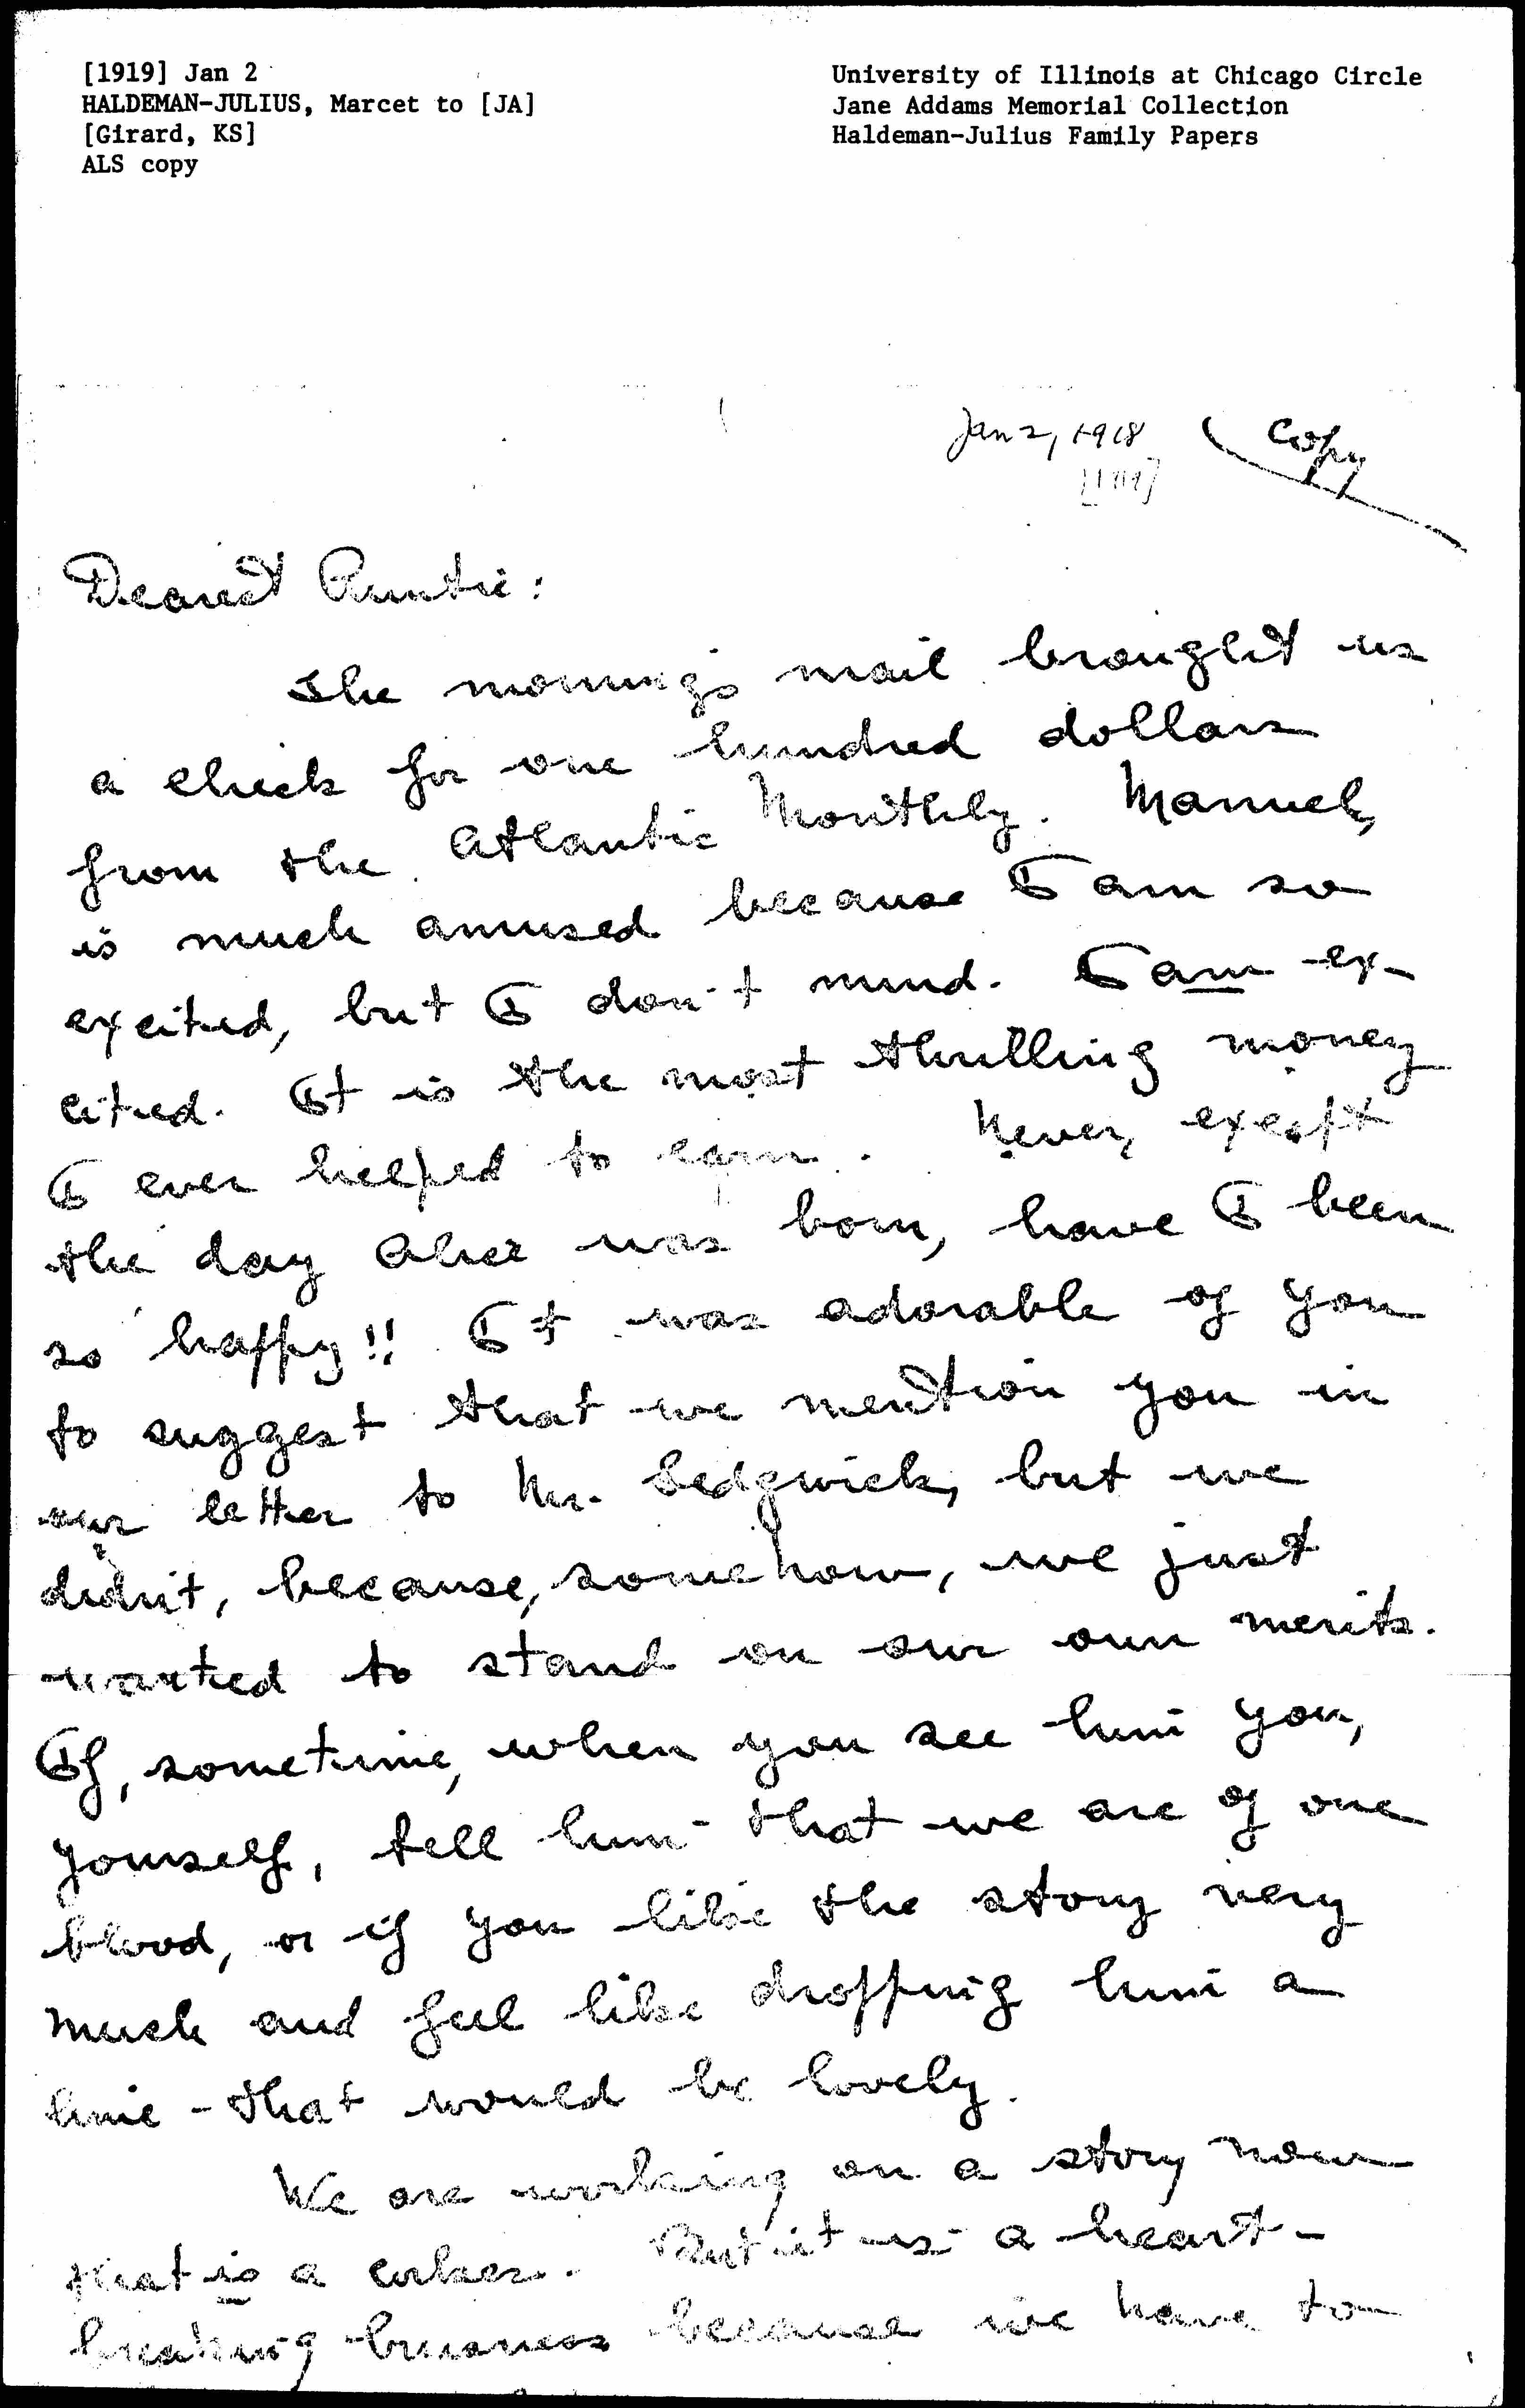 [1919] Jan 2
HALDEMAN-JULIUS, Marcet to [JA]
[Girard, KS]
ALS copy
University of Illinois at Chicago Circle
Jane Addams Memorial Collection
Haldeman-Julius Family Papers
Jan 2, 1918
[1919]
Copy
Dearest Auntie:
The morning's mail brought us
a check for one hundred dollars
from the Atlantic Monthly. Manuel,
is much amused because I am so
excited, but I don't mind. I am ex-
cited. It is the most thrilling money
I ever helped to earn. Never, except
the day Alice was born, have I been
so happy!! It was adorable of you
to suggest that we mention you in
our letter to Mr. Sedgwick, but we
didn't, because, somehow, we just
wanted to stand on our own merits.
If, sometime, when you see him you,
yourself, tell him that we are of one
blood, or if you like the story very
much and feel like dropping him a
line - that would be lovely.
We are working on a story now
that is a corker. But it is a heart-
breaking business because we have to